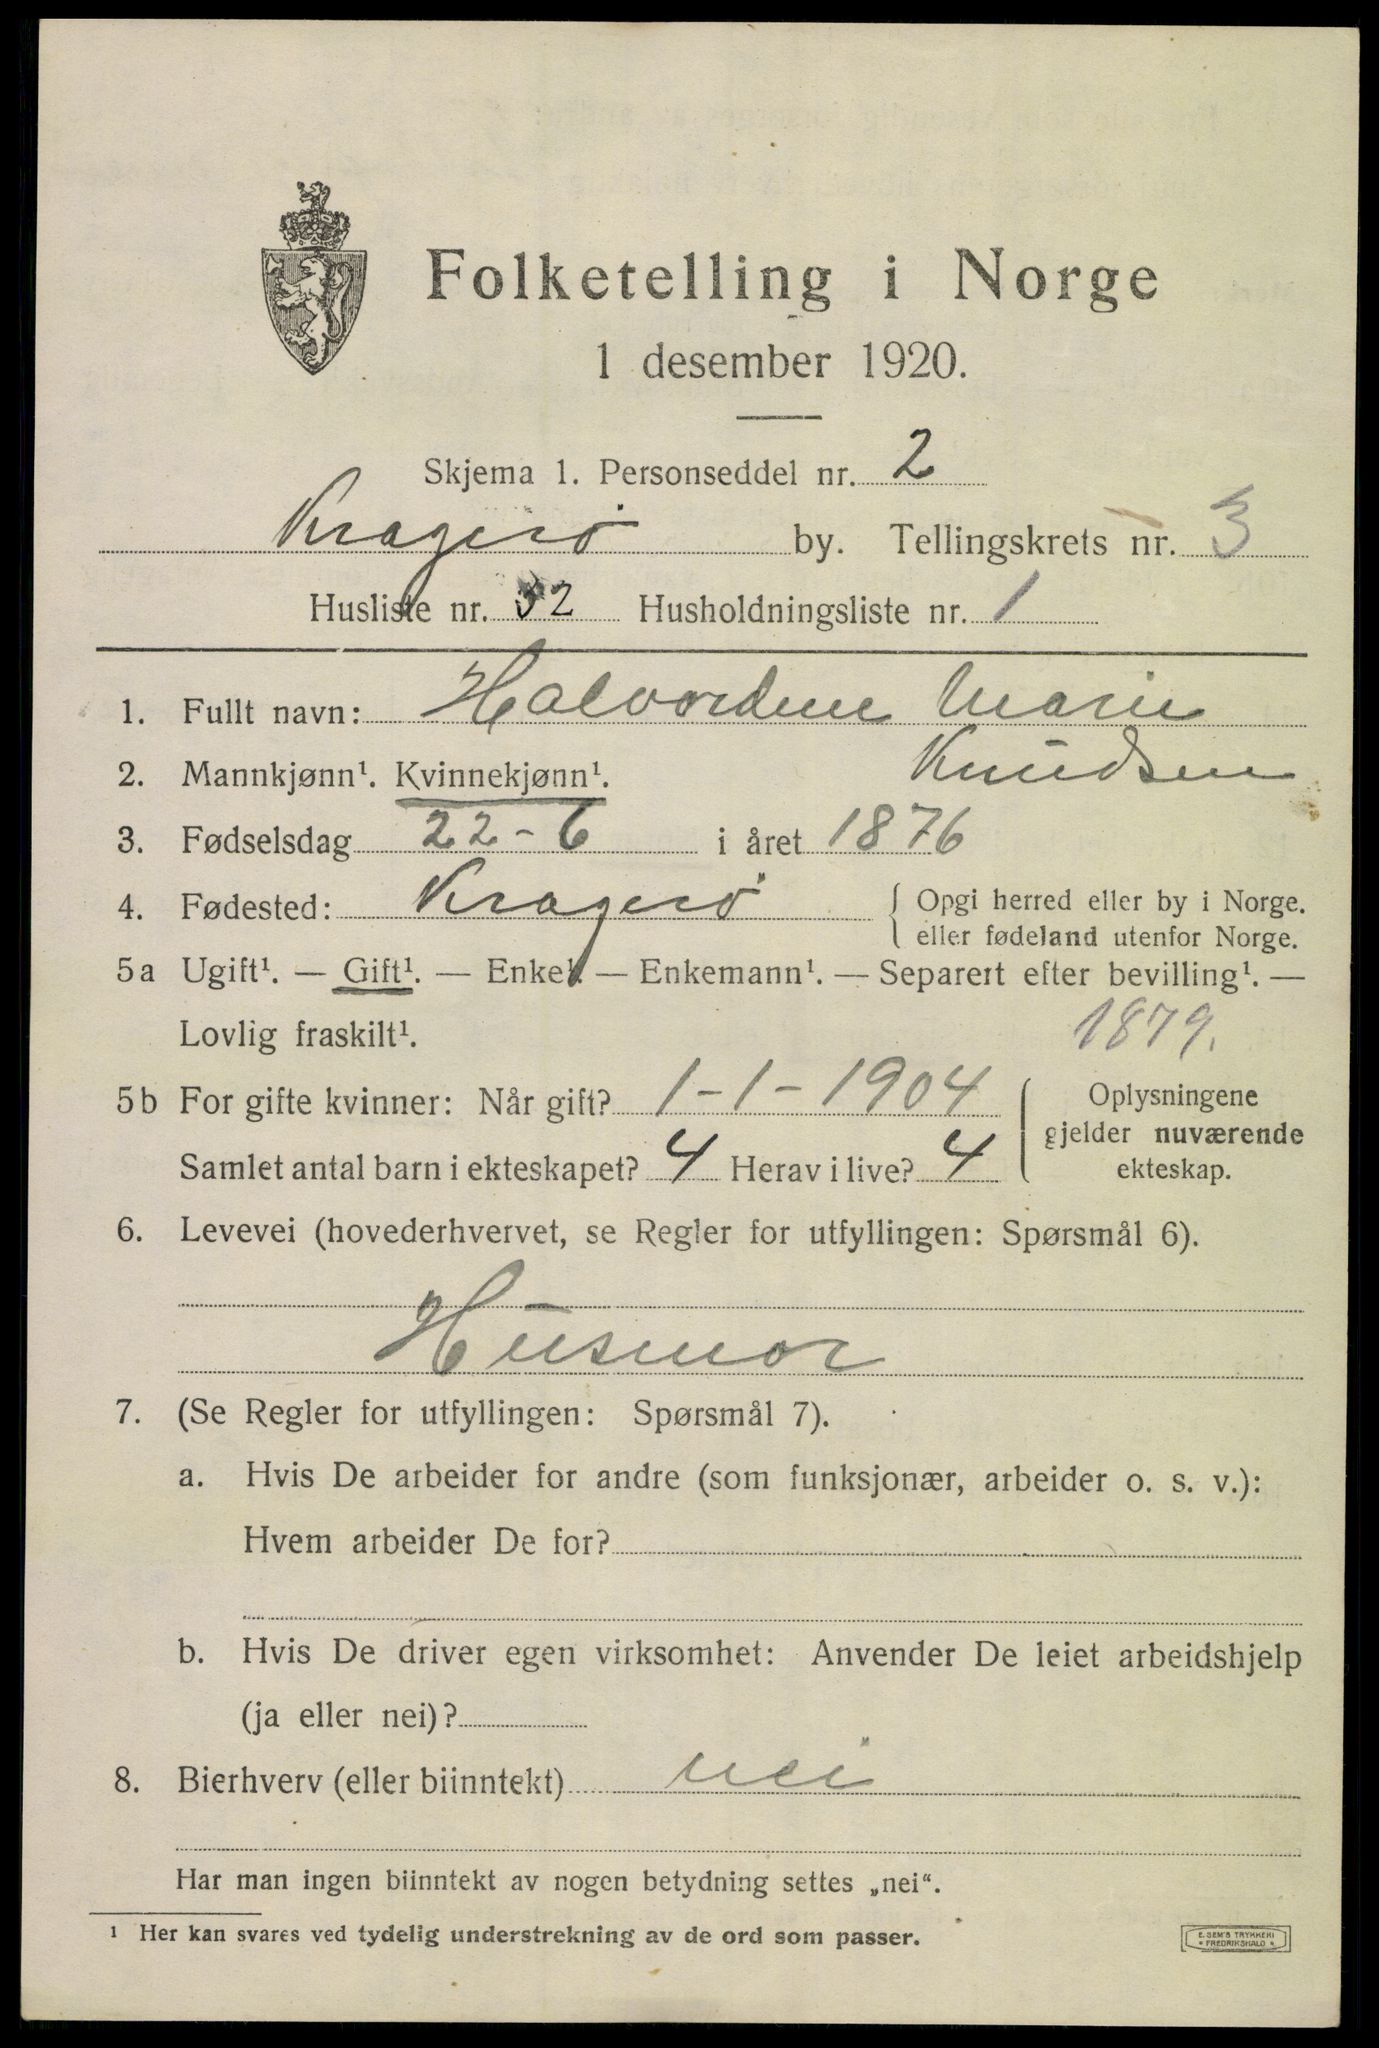 Folketelling i Norge
1 desember 1920.
Skjema 1. Personseddel nr. 2
Kragerö by. Tellingskrets nr. 3
Husliste nr. 32 Husholdningsliste nr. 1
1. Fullt navn: Halvordine Marie
Knudsen
2. Mannkjønn¹. Kvinnekjønn¹.
3. Fødselsdag 22-6 i året 1876
4. Fødested: Kragerö { Opgi herred eller by i Norge.
eller fødeland utenfor Norge.
5a Ugift¹. — Gift¹. — Enke¹. — Enkemann¹. — Separert efter bevilling¹. —
Lovlig fraskilt¹. 1879.
5b For gifte kvinner: Når gift? 1-1-1904 { Oplysningene
gjelder nuværende
Samlet antal barn i ekteskapet? 4 Herav i live? 4 ekteskap.
6. Levevei (hovederhvervet, se Regler for utfyllingen: Spørsmål 6).
Husmor
7. (Se Regler for utfyllingen: Spørsmål 7).
a. Hvis De arbeider for andre (som funksjonær, arbeider o. s. v.):
Hvem arbeider De for?
b. Hvis De driver egen virksomhet: Anvender De leiet arbeidshjelp
(ja eller nei)?
8. Bierhverv (eller biinntekt) nei
Har man ingen biinntekt av nogen betydning settes „nei“.
¹ Her kan svares ved tydelig understrekning av de ord som passer.
E. SEM'S TRYKKERI
• FREDRIKSHALD •